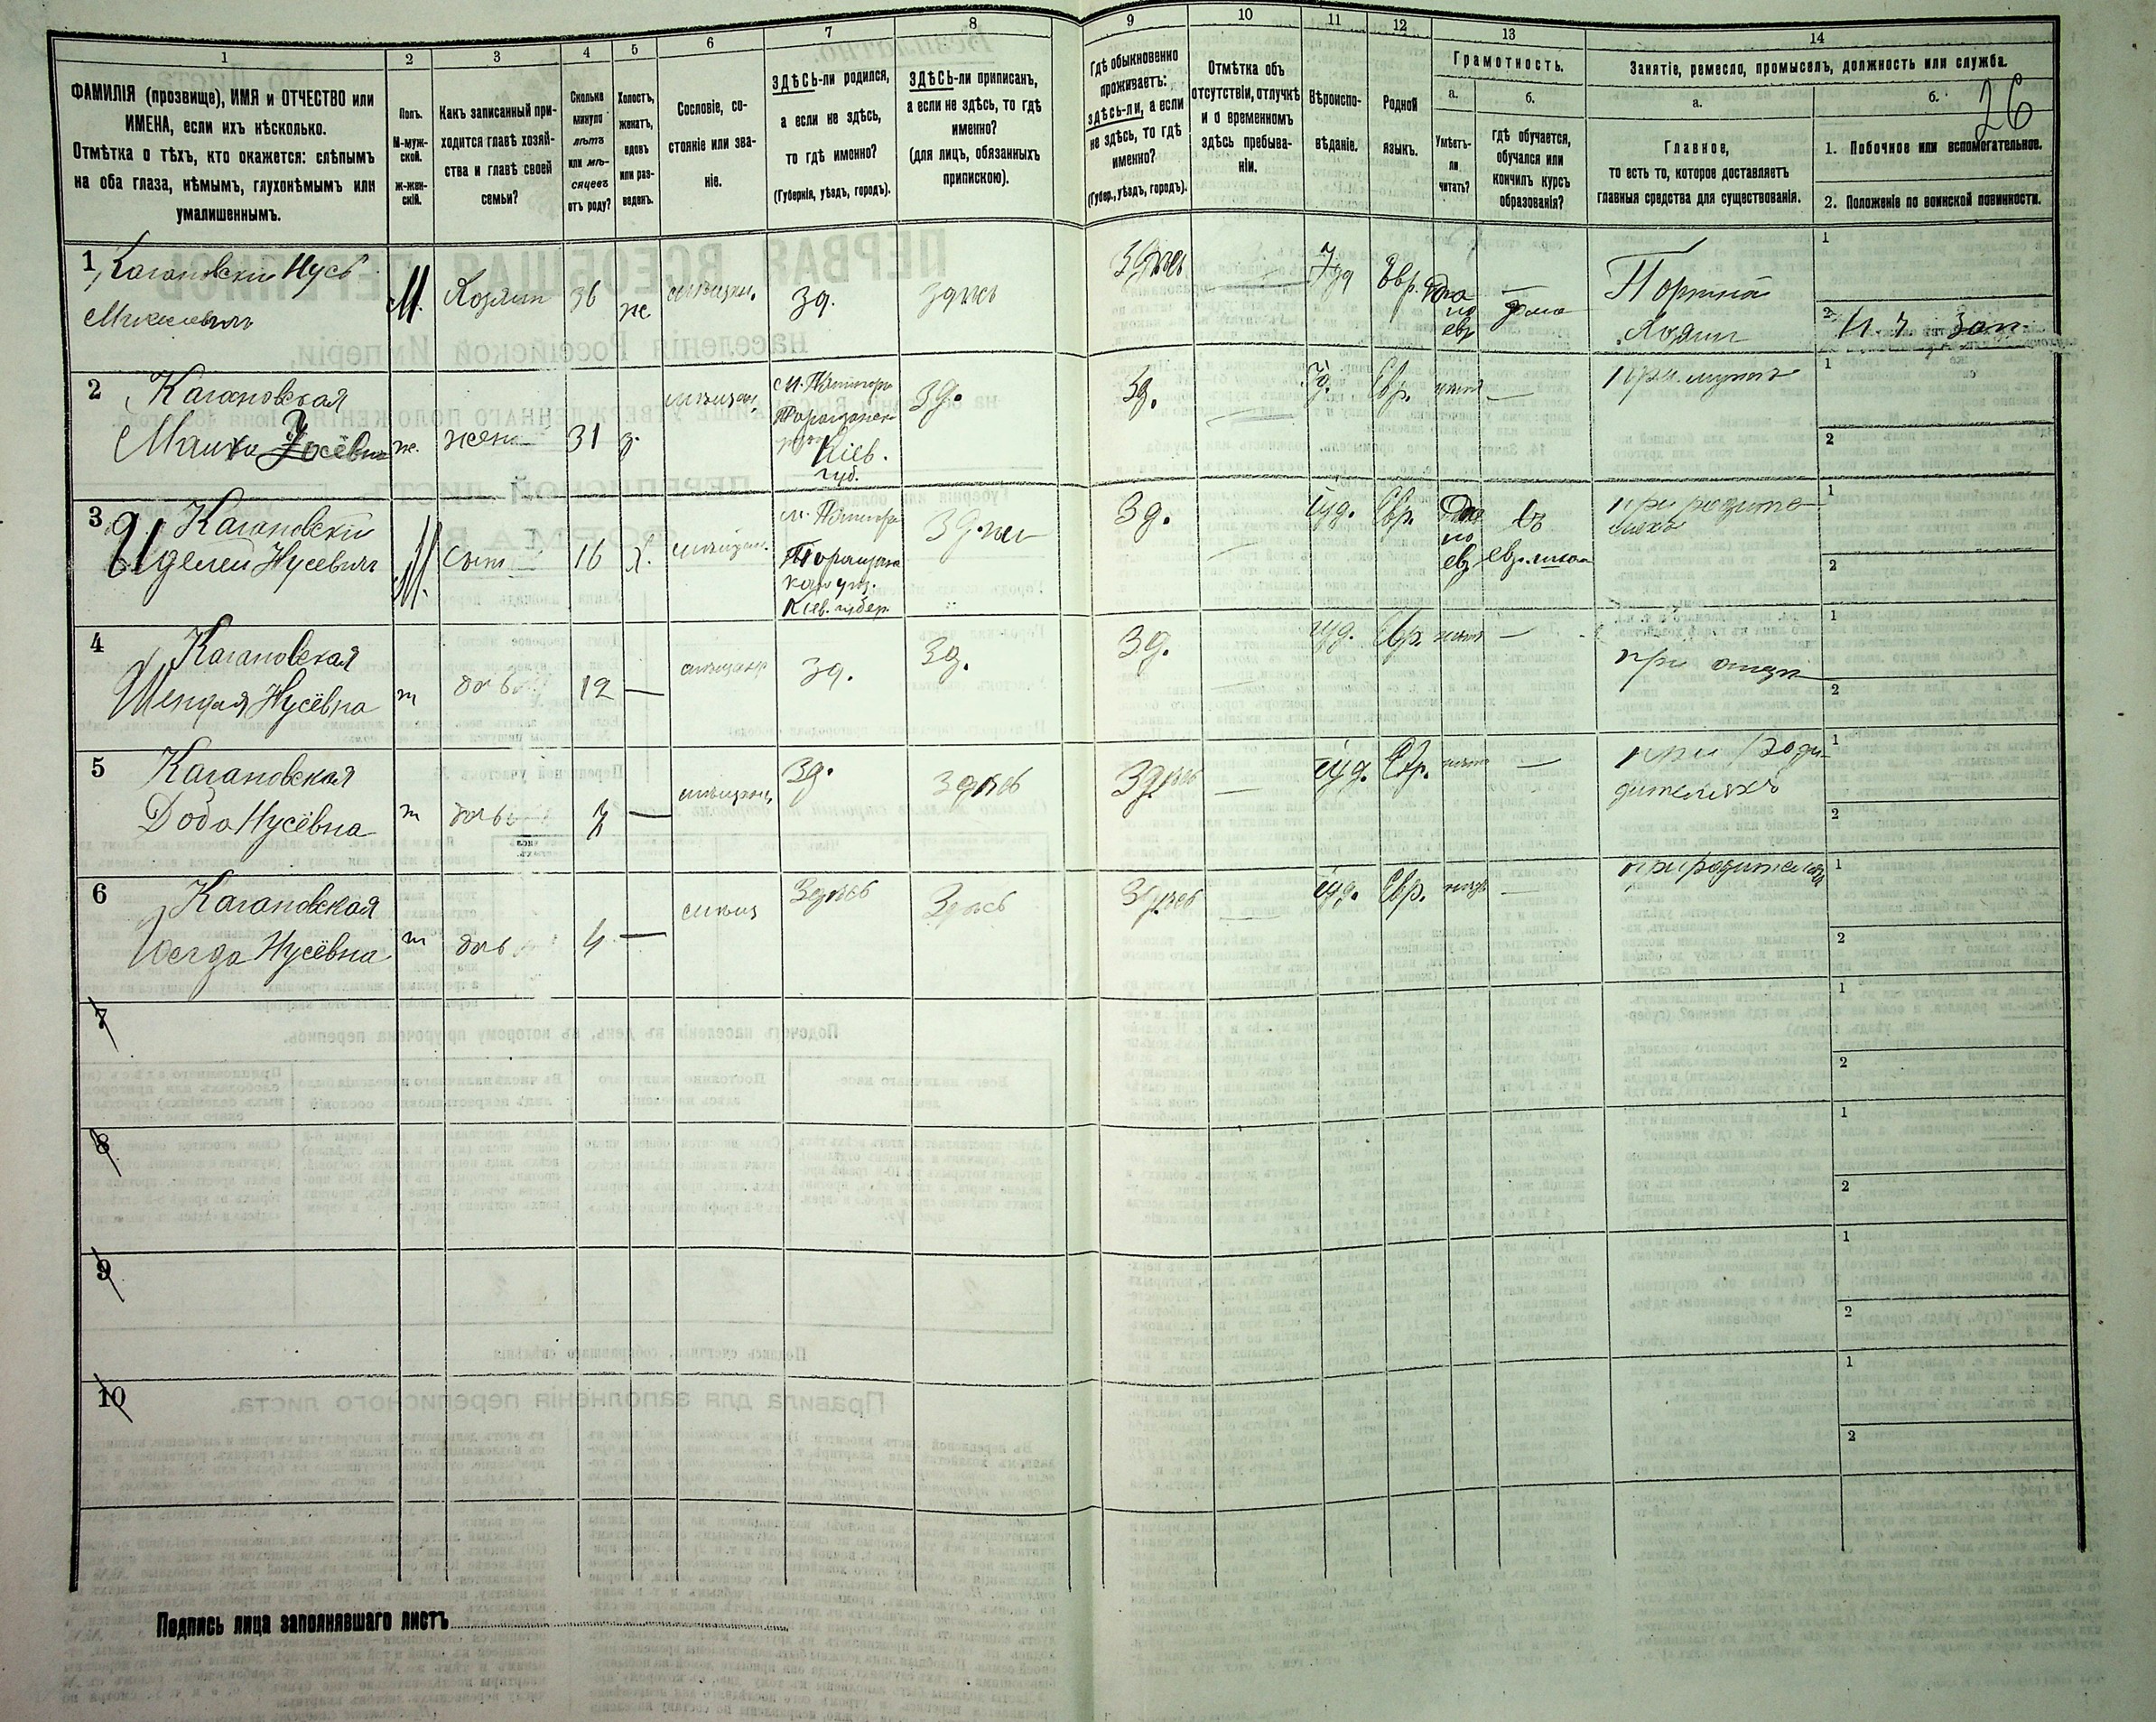 1
2
3
4
5
6
7
8
9
10
11
12
13
14
ФАМИЛІЯ (прозвище), ИМЯ и ОТЧЕСТВО или
ИМЕНА, если ихъ нѣсколько.
Отмѣтка о тѣхъ, кто окажется: слѣпымъ
на оба глаза, нѣмымъ, глухонѣмымъ или
умалишеннымъ.
Полъ.
М-муж-
ской.
ж-жен-
скій.
Какъ записанный при-
ходится главѣ хозяй-
ства и главѣ своей
семьи?
Сколько
минуло
лѣтъ
или мѣ-
сяцевъ
отъ роду?
Холостъ,
женатъ,
вдовъ
или раз-
веденъ.
Сословіе, со-
стояніе или зва-
ніе.
ЗДѢСЬ-ли родился,
а если не здѣсь,
то гдѣ именно?
(Губернія, уѣздъ, городъ).
ЗДѢСЬ-ли приписанъ,
а если не здѣсь, то гдѣ
именно?
(для лицъ, обязанныхъ
припискою).
Гдѣ обыкновенно
проживаетъ:
здѣсь-ли, а если
не здѣсь, то гдѣ
именно?
(Губер., уѣздъ, городъ).
Отмѣтка объ
отсутствіи, отлучкѣ
и о временномъ
здѣсь пребыва-
ніи.
Вѣроиспо-
вѣданіе.
Родной
языкъ.
Грамотность.
а.
Умѣетъ-
ли
читать?
б.
гдѣ обучается,
обучался или
кончилъ курсъ
образованія?
Занятіе, ремесло, промыселъ, должность или служба.
а.
Главное,
то есть то, которое доставляетъ
главныя средства для существованія.
б.
26
1. Побочное или вспомогательное.
2. Положеніе по воинской повинности.
1 Кагановскій Нусь
М. Хозяин 36 ж мѣщан. зд. здѣсь Здѣсь Іуд Евр. Да
по
евр
дома
Портной
Хозяин
1
2
2 Кагановская
Малка Іосёвна
ж. жена 31 з. мѣщан.
Кіев.
губ.
зд. Зд. Ід. Евр. нѣтъ —
при мужѣ
1
2
3 Кагановскій
Нусевичъ
М. сын 16 х. мѣщан.
Кіев. губер.
Здѣсь Зд. іуд. Евр. Да
по
евр
въ
евр. школѣ
при родите-
ляхъ
1
2
4 Кагановская
Шендля Нусёвна
ж дочь 12 — мѣщан зд. Зд. Зд. іуд. Евр. нѣтъ —
при отцѣ
1
2
5 Кагановская
Доба Нусёвна
ж дочь 7 — мѣщан. Зд. Здѣсь Здѣсь — іуд. Евр. нѣтъ —
при роди-
дителяхъ
1
2
6 Кагановская
Нусёвна
ж дочь 4 — мѣщ Здѣсь Здѣсь Здѣсь — іуд. Евр. нѣтъ —
при родителяхъ
1
2
7
1
2
8
1
2
9
1
2
10
1
2
Подпись лица заполнявшаго листъ